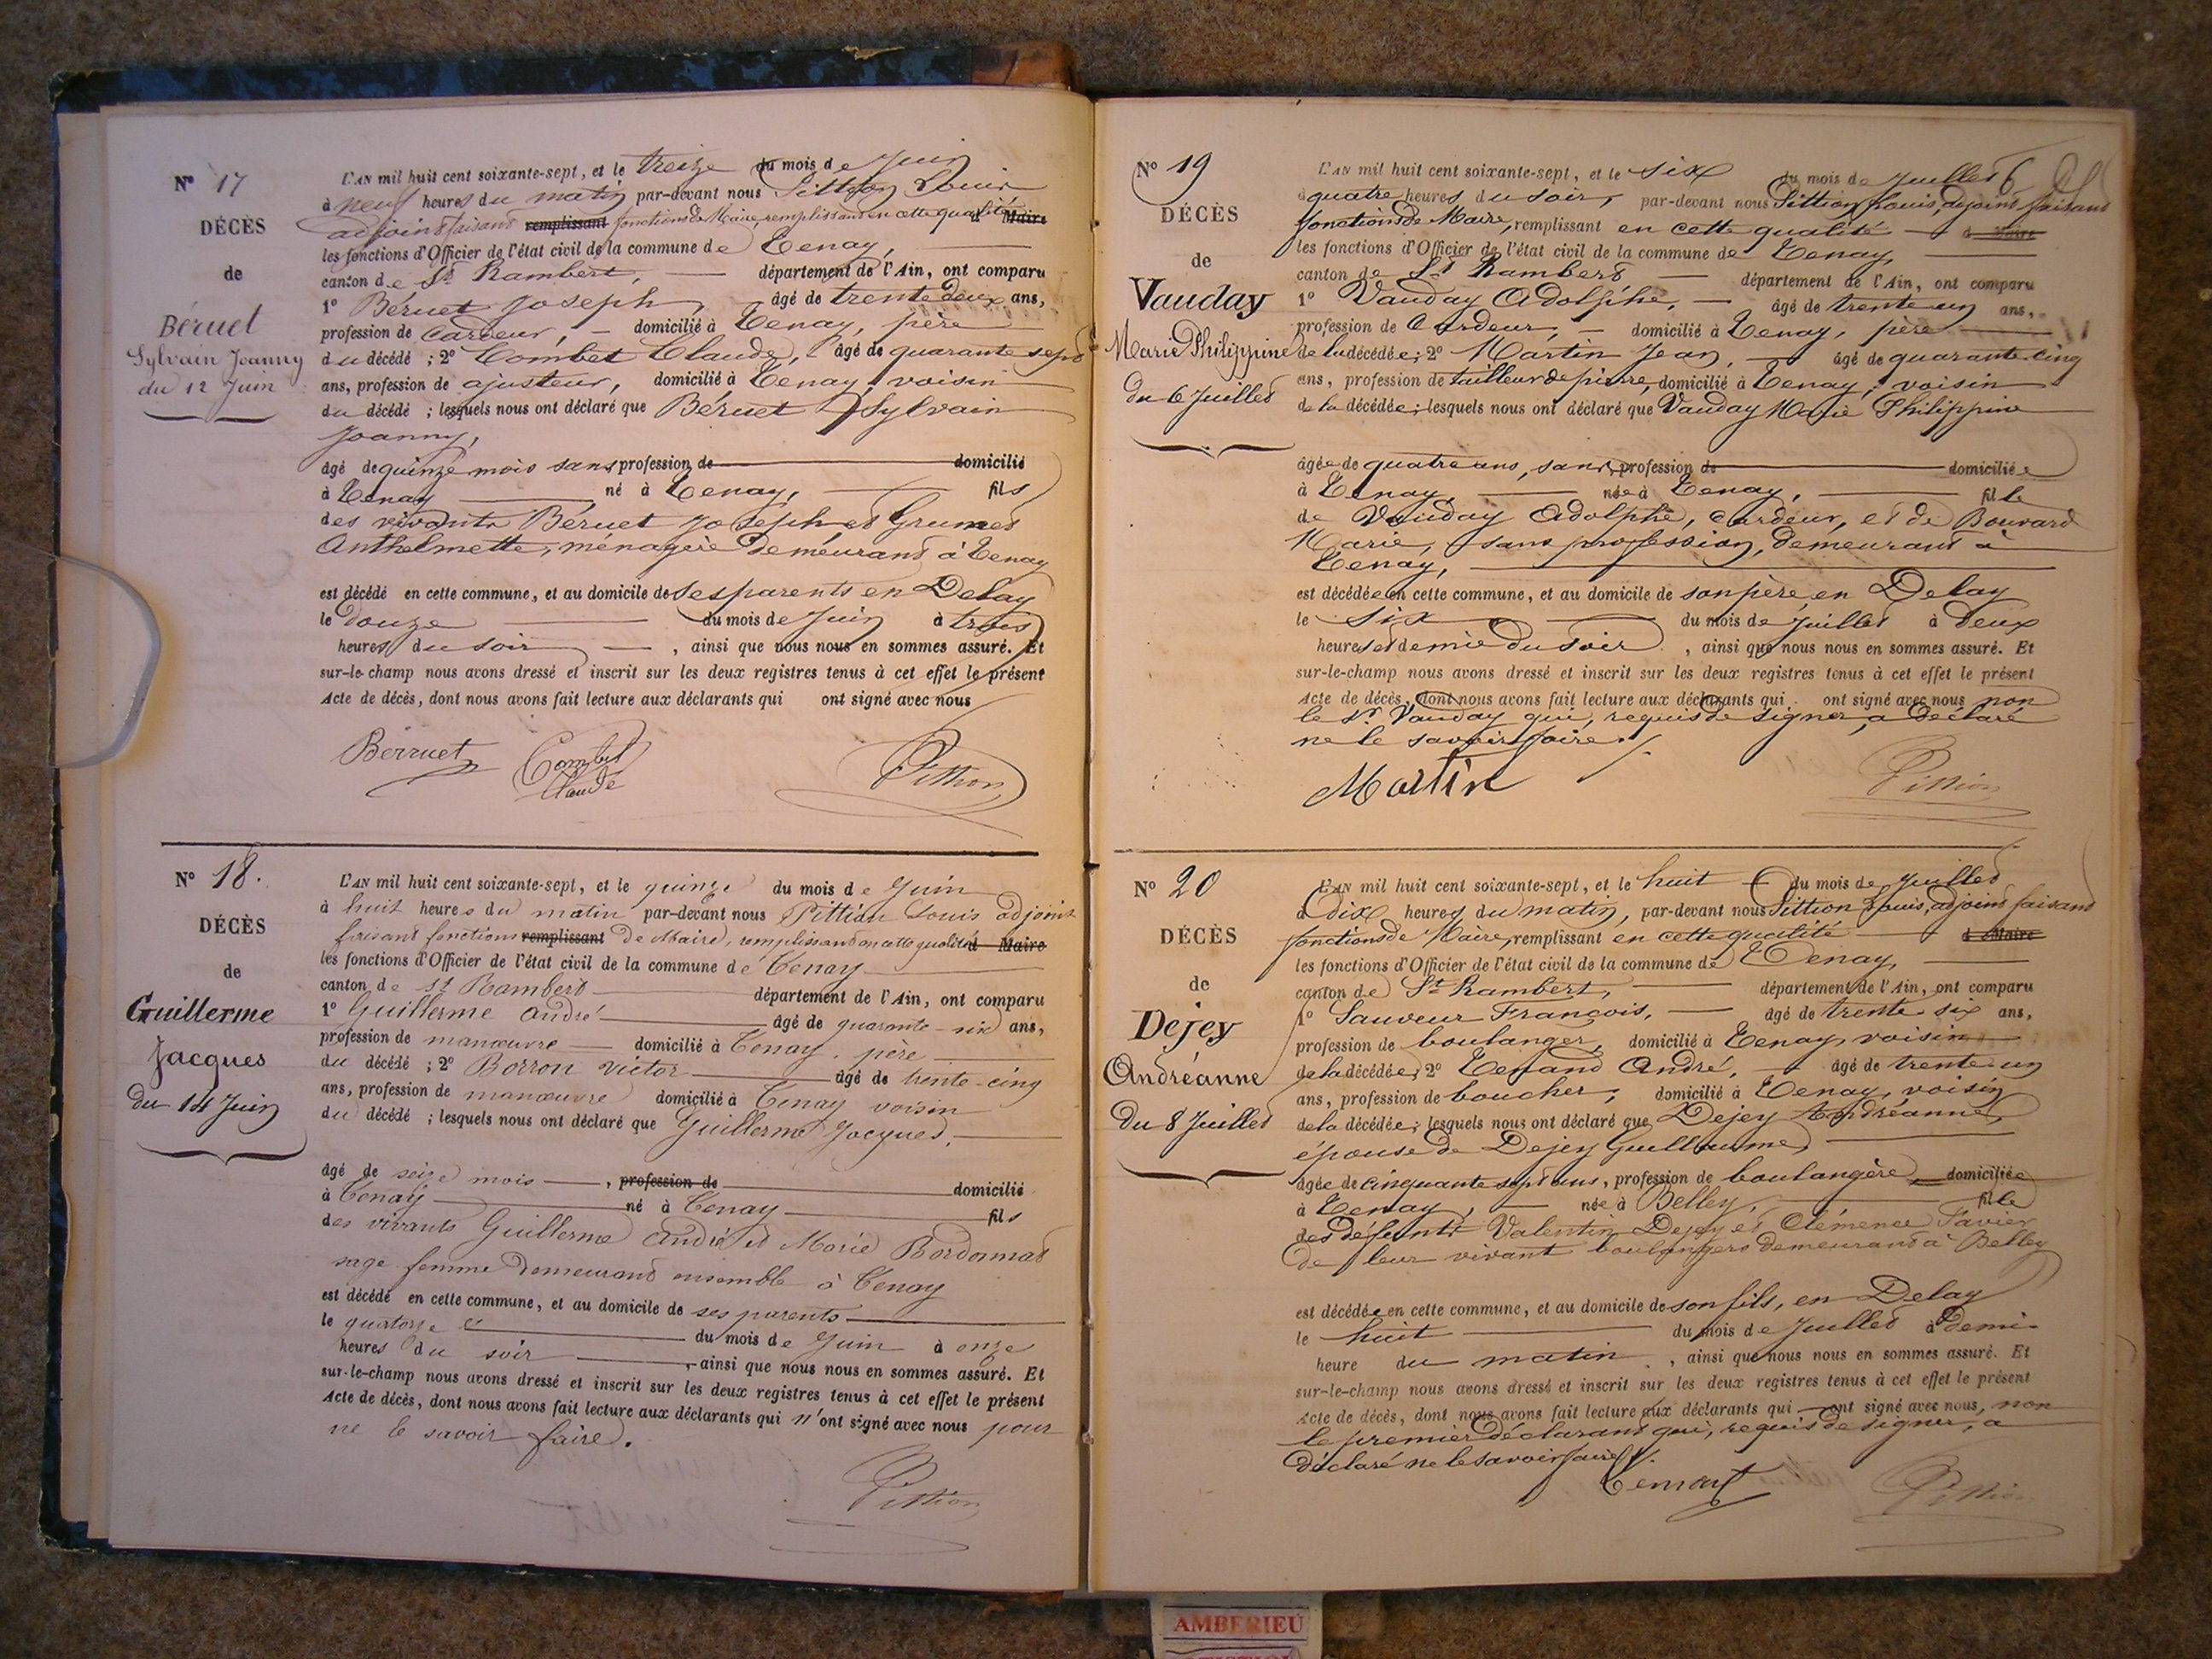 N° 17
DÉCÈS
de
Béruet
Sylvain Joanny
du 12 Juin
L'AN mil huit cent soixante-sept, et le treize du mois de Juin
à neuf heures du matin par-devant nous Pittion Louis
adjoint faisant remplissant fonctions de Maire, remplissant en cette qualité Maire
les fonctions d'Officier de l'état civil de la commune de Tenay,
canton de St Rambert, département de l'Ain, ont comparu
1° Béruet Joseph, âgé de trente deux ans,
profession de cardeur, domicilié à Tenay, père
du décédé ; 2° Combet Claude, âgé de quarante sept
ans, profession de ajusteur, domicilié à Tenay, voisin
du décédé ; lesquels nous ont déclaré que Béruet Sylvain
Joanny,
âgé de quinze mois sans profession de domicilié
à Tenay né à Tenay, fils
des vivants Béruet Joseph et Grumet
Anthelmette, ménagère demeurant à Tenay
est décédé en cette commune, et au domicile de ses parents en Delay
le douze du mois de Juin à trois
heures du soir, ainsi que nous nous en sommes assuré. Et
sur-le-champ nous avons dressé et inscrit sur les deux registres tenus à cet effet le présent
Acte de décès, dont nous avons fait lecture aux déclarants qui ont signé avec nous
Berruet Combet Claude Pittion
N° 18.
DÉCÈS
de
Guillerme
Jacques
du 14 Juin
L'AN mil huit cent soixante-sept, et le quinze du mois de Juin
à huit heures du matin par-devant nous Pittion Louis adjoint
faisant fonctions remplissant de Maire, remplissant en cette qualité Maire
les fonctions d'Officier de l'état civil de la commune de Tenay
canton de St Rambert département de l'Ain, ont comparu
1° Guillerme André âgé de quarante-six ans,
profession de manœuvre domicilié à Tenay. père
du décédé ; 2° Borron victor âgé de trente-cinq
ans, profession de manœuvre domicilié à Tenay voisin
du décédé ; lesquels nous ont déclaré que Guillerme Jacques,
âgé de seize mois, profession de domicilié
à Tenay né à Tenay fils
des vivants Guillerme André et Marie Bordomat
sage femme demeurant ensemble à Tenay
est décédé en cette commune, et au domicile de ses parents
le quatorze du mois de Juin à onze
heures du soir, ainsi que nous nous en sommes assuré. Et
sur-le-champ nous avons dressé et inscrit sur les deux registres tenus à cet effet le présent
Acte de décès, dont nous avons fait lecture aux déclarants qui n'ont signé avec nous pour
ne le savoir faire.
Pittion
N° 19
DÉCÈS
de
Vauday
Marie Philippine
du 6 Juillet
L'AN mil huit cent soixante-sept, et le six du mois de Juillet
à quatre heures du soir, par-devant nous Pittion Louis, adjoint faisant
fonctions de Maire, remplissant en cette qualité
les fonctions d'Officier de l'état civil de la commune de Tenay,
canton de St Rambert département de l'Ain, ont comparu
1° Vauday Adolphe, âgé de trente un ans,
profession de Cardeur, domicilié à Tenay, père
de la décédée ; 2° Martin Jean, âgé de quarante-cinq
ans, profession de tailleur de pierre, domicilié à Tenay, voisin
de la décédée ; lesquels nous ont déclaré que Vauday Marie Philippine
âgée de quatre ans, sans profession de domiciliée
à Tenay, née à Tenay, fille
de Vauday Adolphe, cardeur, et de Bouvard
Marie, sans profession, demeurant à
Tenay,
est décédée en cette commune, et au domicile de son père, en Delay
le six du mois de Juillet à deux
heures et demie du soir, ainsi que nous nous en sommes assuré. Et
sur-le-champ nous avons dressé et inscrit sur les deux registres tenus à cet effet le présent
Acte de décès, dont nous avons fait lecture aux déclarants qui ont signé avec nous non
le Sr Vauday qui, requis de signer, a déclaré
ne le savoir faire.
Martin Pittion
N° 20
DÉCÈS
de
Dejey
Andréanne
du 8 Juillet
L'AN mil huit cent soixante-sept, et le huit du mois de Juillet
à Dix heures du matin, par-devant nous Pittion Louis, adjoint faisant
fonctions de Maire, remplissant en cette qualité Maire
les fonctions d'Officier de l'état civil de la commune de Tenay,
canton de St Rambert, département de l'Ain, ont comparu
1° Sauveur François, âgé de trente six ans,
profession de boulanger, domicilié à Tenay, voisin
de la décédée ; 2° Tenand André, âgé de trente un
ans, profession de boucher, domicilié à Tenay, voisin
de la décédée ; lesquels nous ont déclaré que Dejey Andréanne,
épouse de Dejey Guillaume,
âgée de cinquante sept ans, profession de boulangère, domiciliée
à Tenay, née à Belley, fille
des défunts Valentin Dejey et Clémence Favier
de leur vivant boulangers demeurant à Belley
est décédée en cette commune, et au domicile de son fils, en Delay
le huit du mois de Juillet à demi-
heure du matin, ainsi que nous nous en sommes assuré. Et
sur-le-champ nous avons dressé et inscrit sur les deux registres tenus à cet effet le présent
Acte de décès, dont nous avons fait lecture aux déclarants qui ont signé avec nous, non
le premier déclarant qui, requis de signer, a
déclaré ne le savoir faire.
Pittion
AMBERIEU